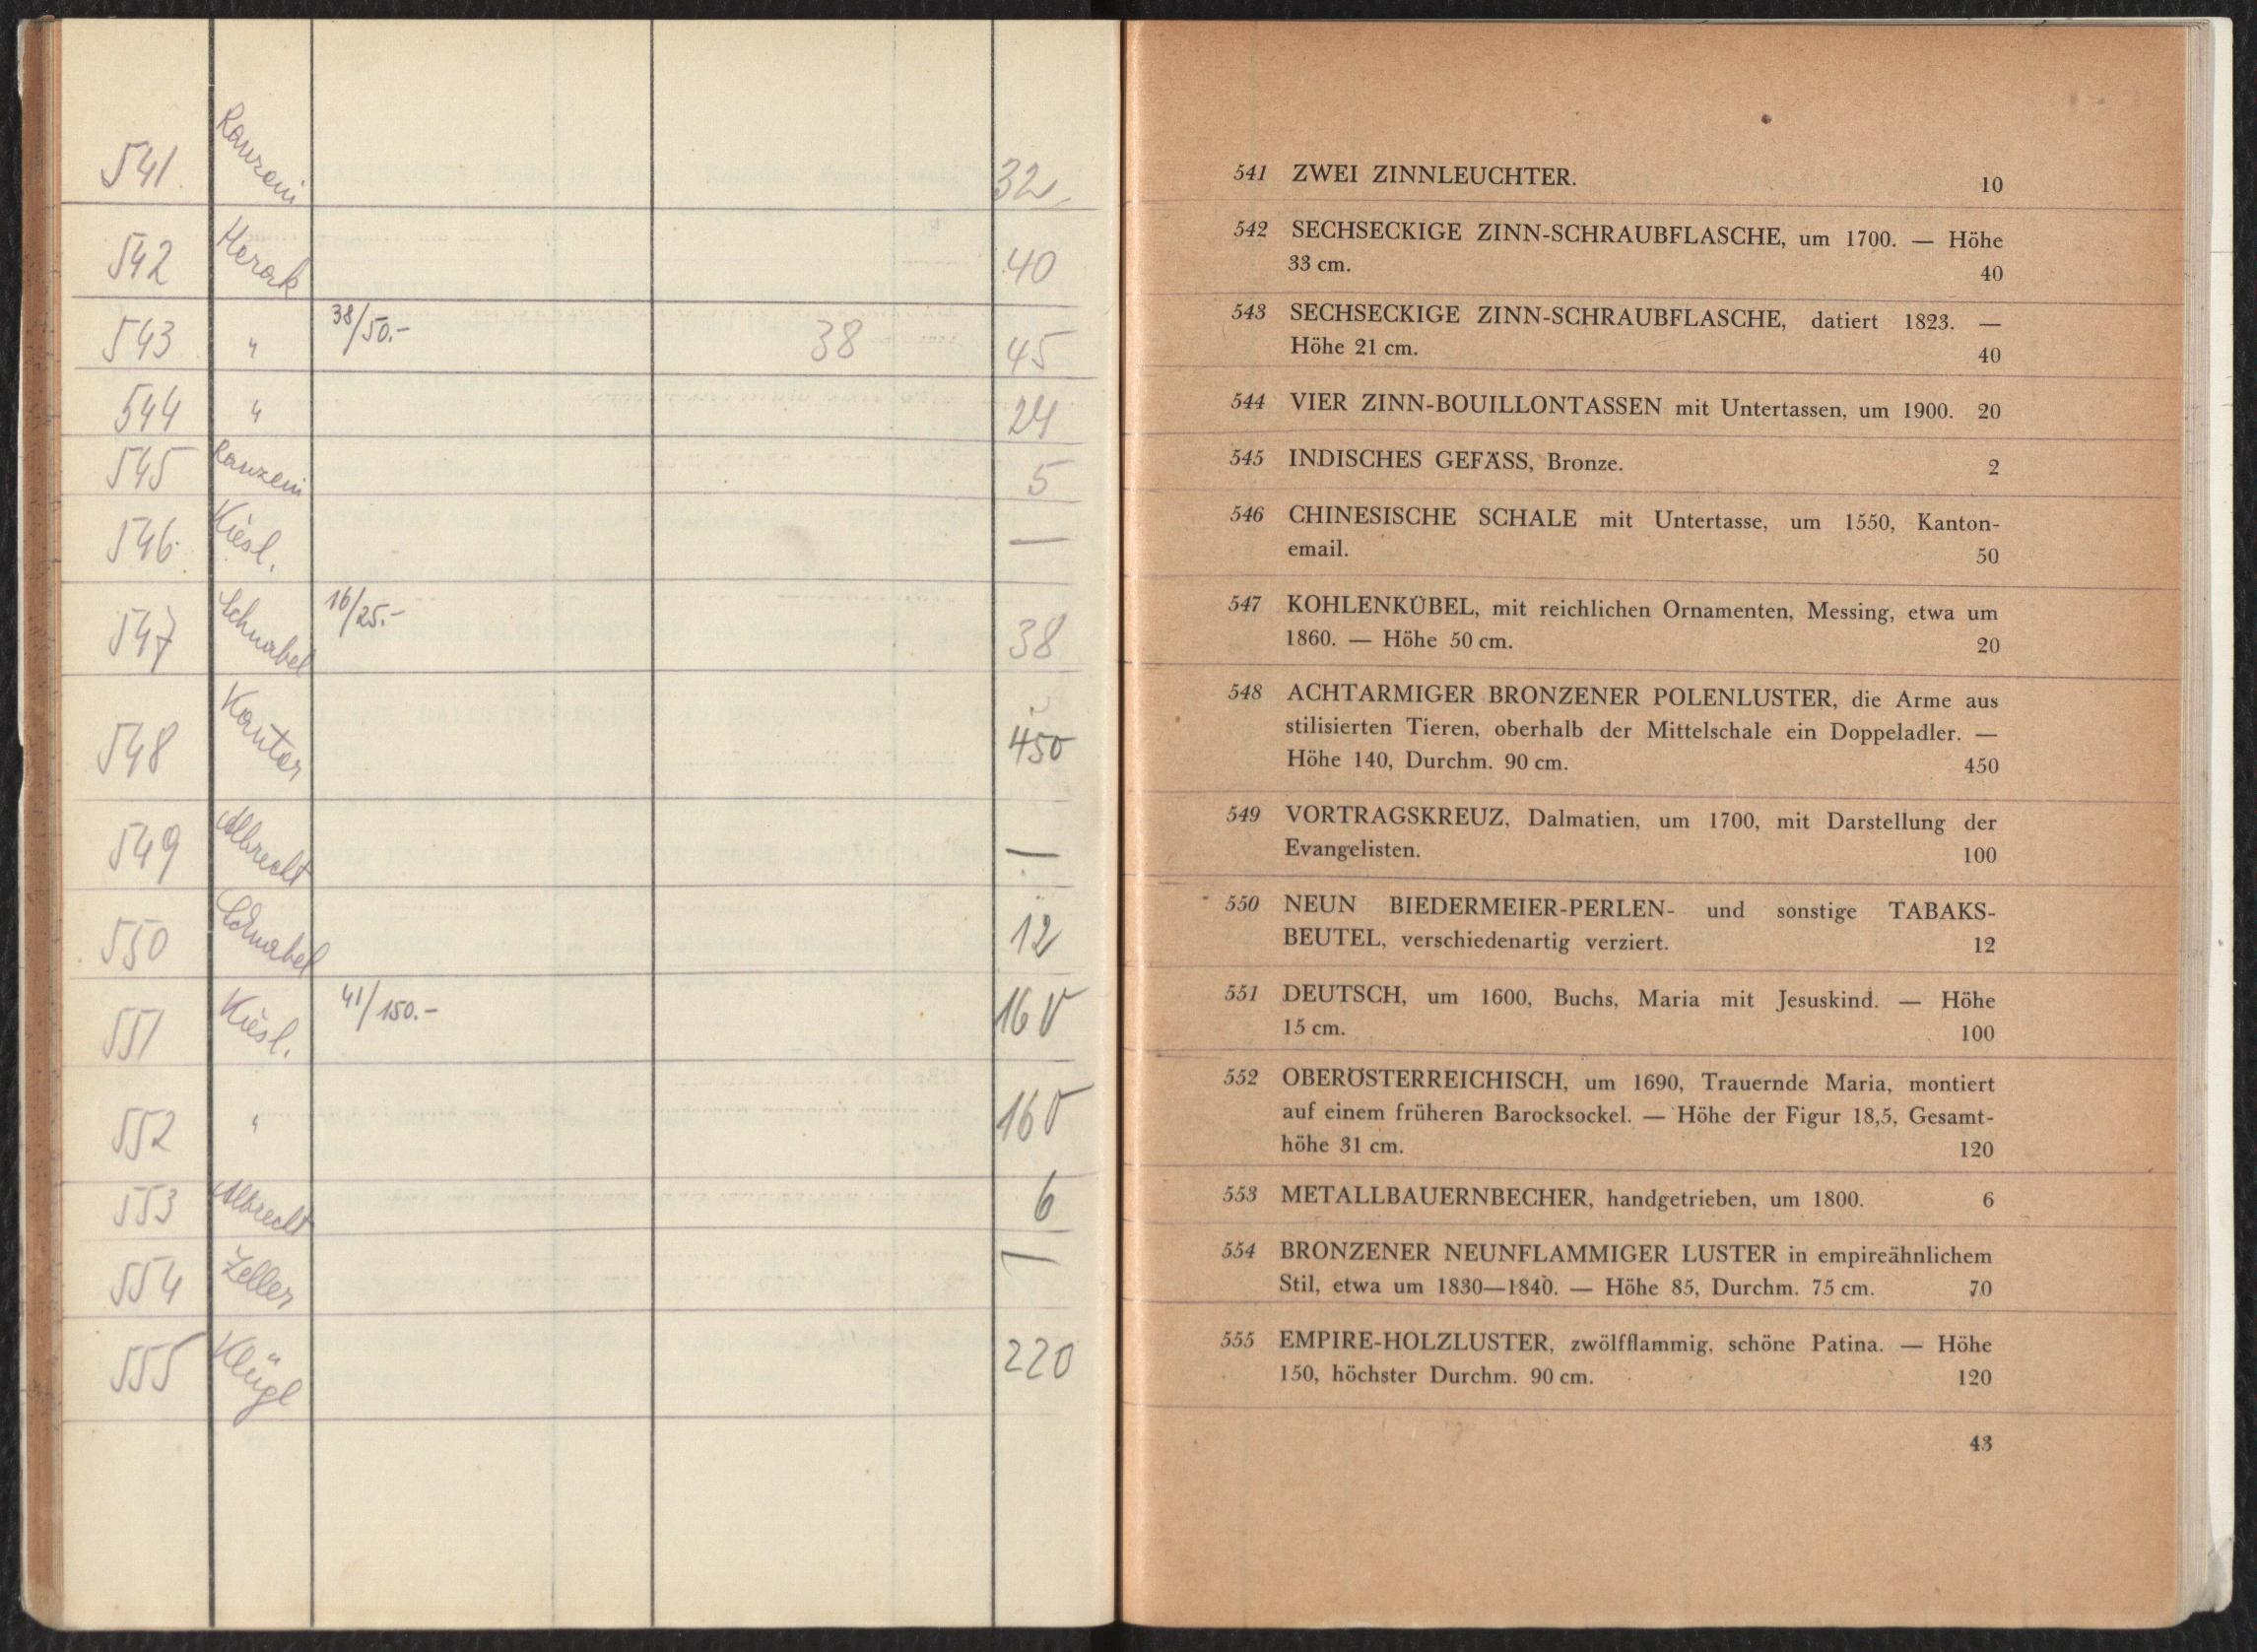 541. Ranzoni 32
542 Herok 40
543 " 38/50.- 38 45
544 " 24
545 Ranzoni 5
546. Kiesl. —
547 Schnabel 16/25.- 38
548 Kantor 450
549 Albrecht —
550 Schnabel 12
551 Kiesl. 41/150.- 160
552 " 160
553 Albrecht 6
554 Zeller —
555 Klügl 220
541 ZWEI ZINNLEUCHTER. 10
542 SECHSECKIGE ZINN-SCHRAUBFLASCHE, um 1700. — Höhe
33 cm. 40
543 SECHSECKIGE ZINN-SCHRAUBFLASCHE, datiert 1823. —
Höhe 21 cm. 40
544 VIER ZINN-BOUILLONTASSEN mit Untertassen, um 1900. 20
545 INDISCHES GEFÄSS, Bronze. 2
546 CHINESISCHE SCHALE mit Untertasse, um 1550, Kanton-
email. 50
547 KOHLENKÜBEL, mit reichlichen Ornamenten, Messing, etwa um
1860. — Höhe 50 cm. 20
548 ACHTARMIGER BRONZENER POLENLUSTER, die Arme aus
stilisierten Tieren, oberhalb der Mittelschale ein Doppeladler. —
Höhe 140, Durchm. 90 cm. 450
549 VORTRAGSKREUZ, Dalmatien, um 1700, mit Darstellung der
Evangelisten. 100
550 NEUN BIEDERMEIER-PERLEN- und sonstige TABAKS-
BEUTEL, verschiedenartig verziert. 12
551 DEUTSCH, um 1600, Buchs, Maria mit Jesuskind. — Höhe
15 cm. 100
552 OBERÖSTERREICHISCH, um 1690, Trauernde Maria, montiert
auf einem früheren Barocksockel. — Höhe der Figur 18,5, Gesamt-
höhe 31 cm. 120
553 METALLBAUERNBECHER, handgetrieben, um 1800. 6
554 BRONZENER NEUNFLAMMIGER LUSTER in empireähnlichem
Stil, etwa um 1830—1840. — Höhe 85, Durchm. 75 cm. 70
555 EMPIRE-HOLZLUSTER, zwölfflammig, schöne Patina. — Höhe
150, höchster Durchm. 90 cm. 120
43